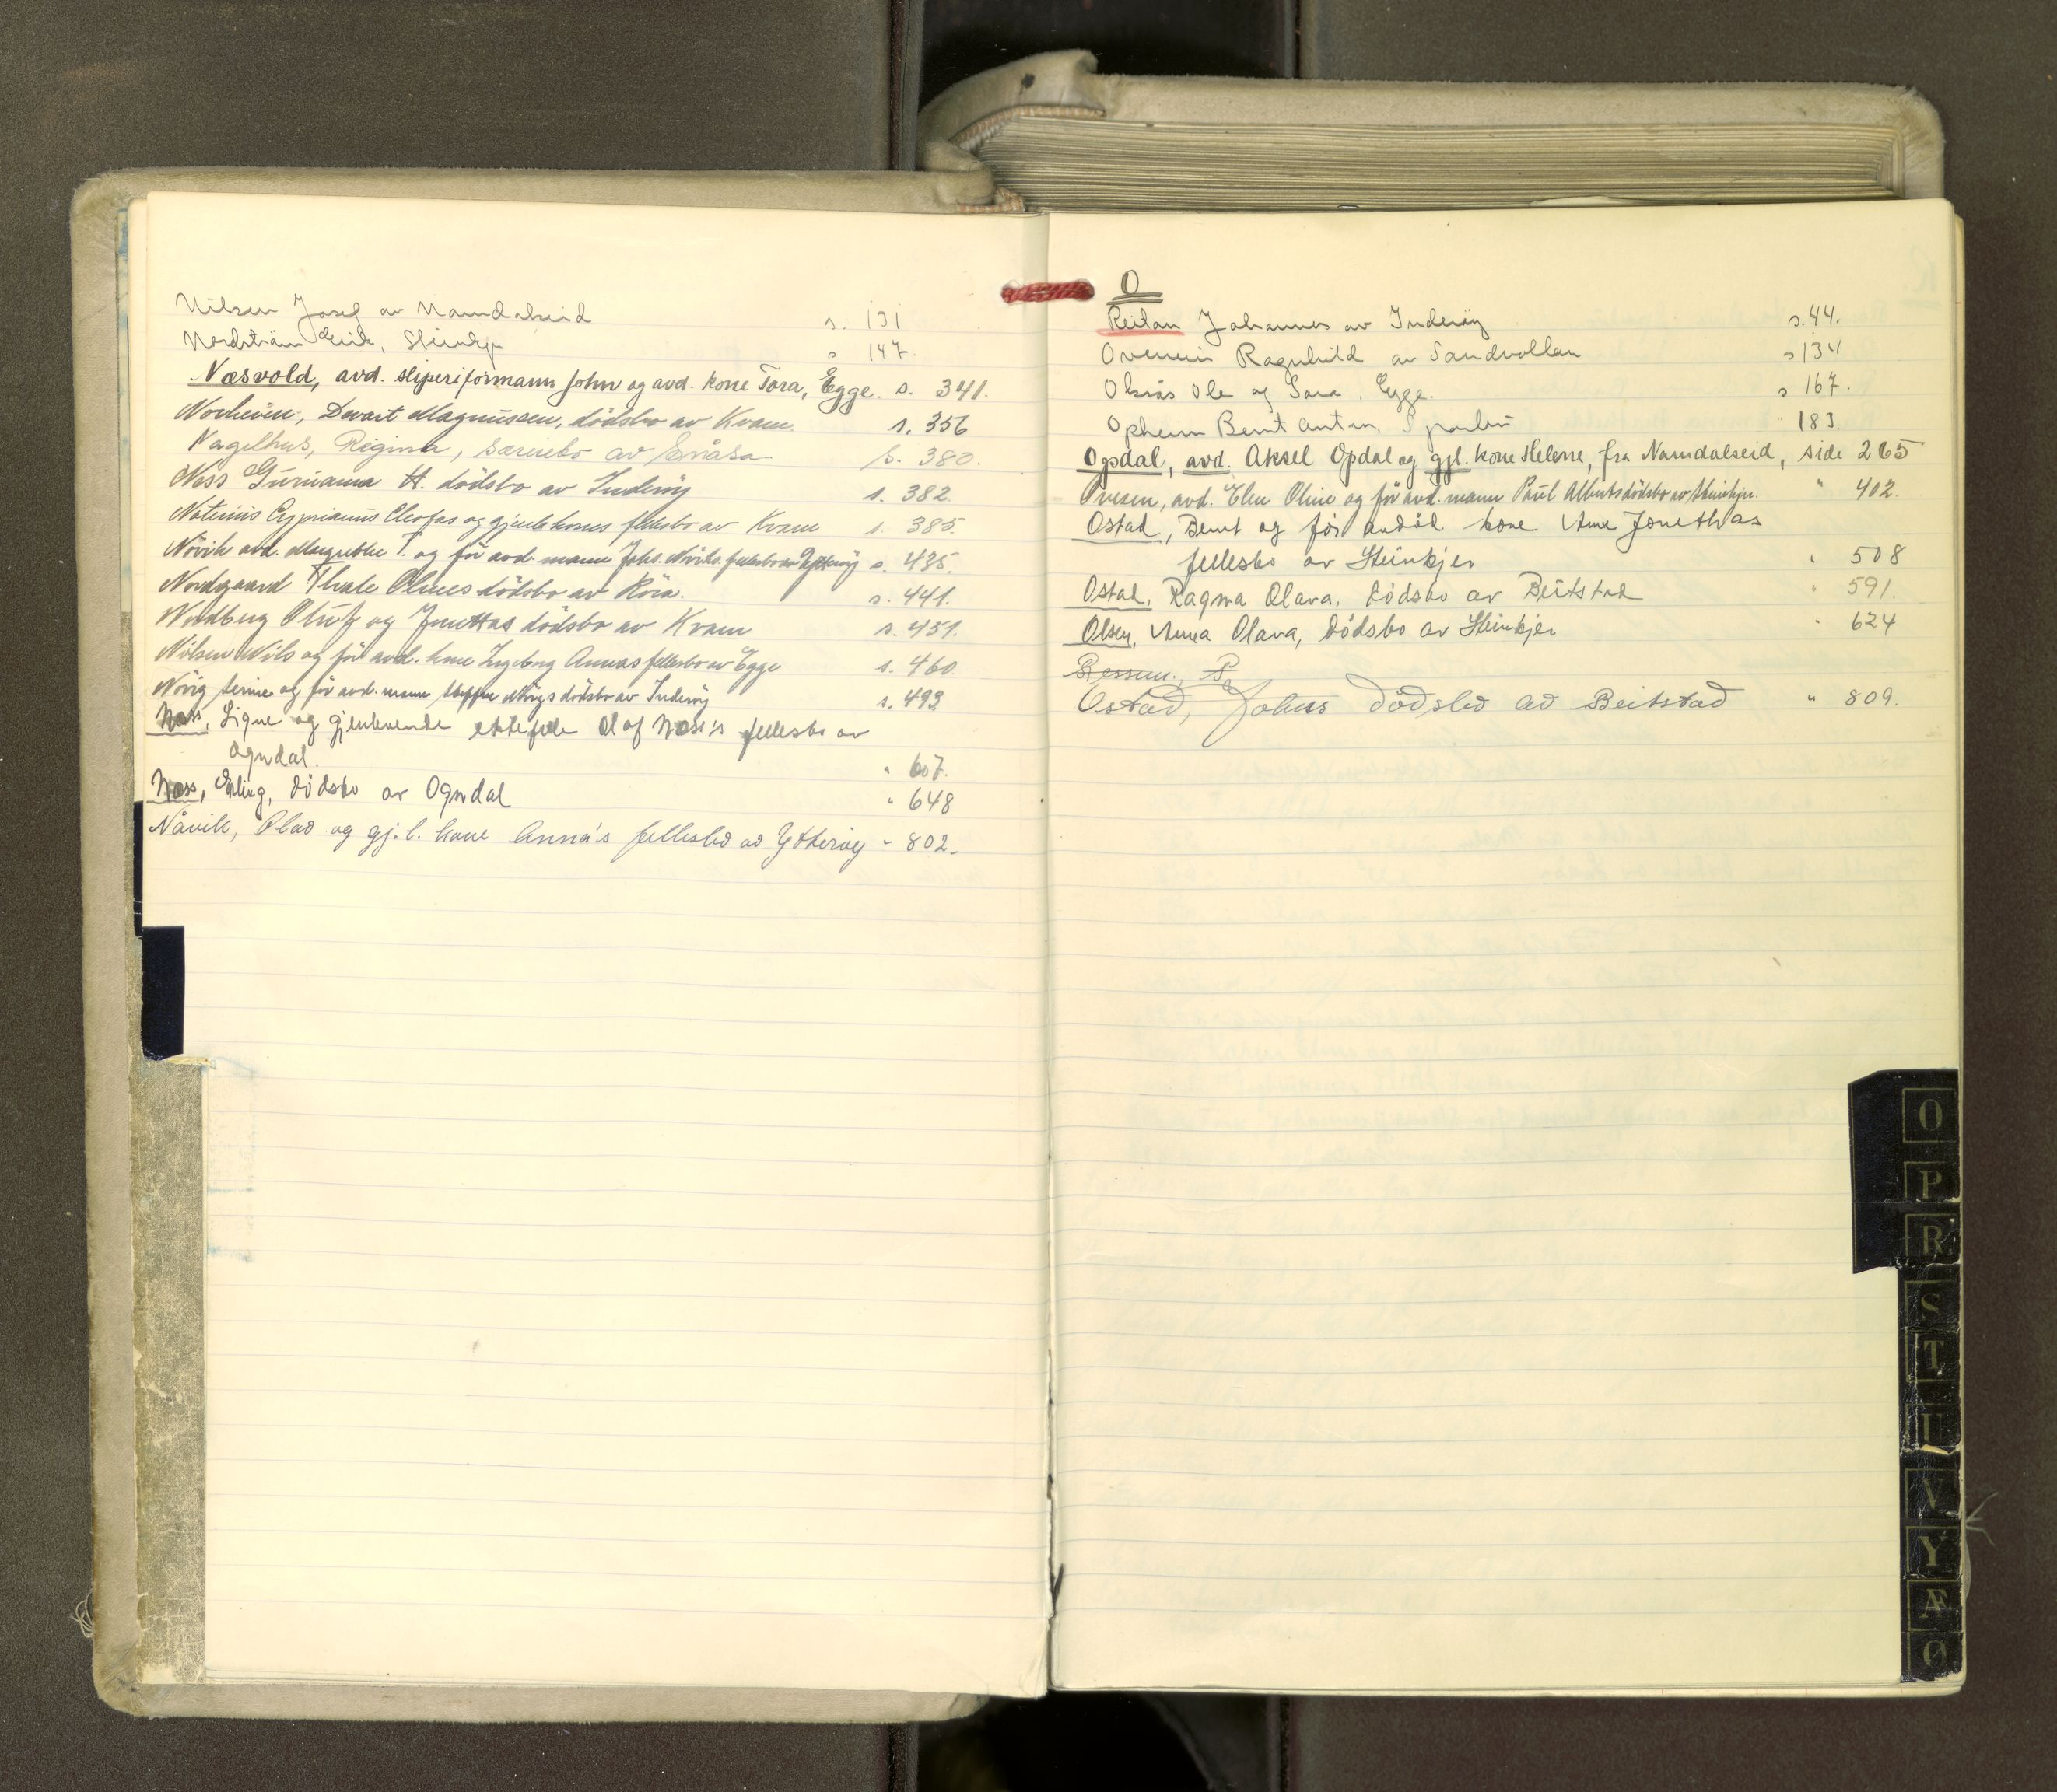 Nilsen Josef av Namdalseid s. 131
Nordström Eirik, Steinkjer s 147.
Næsvold, avd. sliperiformann John og avd. kone Tora, Egge. s. 341.
Norheim, Magnussen, dödsbo av Kvam. s. 356
Nagelhus, Regina, særeiebo av Snåsa s. 380.
Ness Guruanna H. dödsbo av Inderöy s. 382.
Cyprianus Cleofas og gjenl. kones fellesbo av Kvam s. 385.
Növik avd. Margrethe T. og för avd. mann Johs. Növiks fellesbo av Ytteröy s. 435.
Nordgaard Olines dödsbo av Röra. s. 441.
Nordberg Oluf og Jenettas dödsbo av Kvam s. 451.
Nilsen Nils og för avd. kone Ingeborg Annas fellesbo av Egge s. 460.
Serine og för avd. mann dödsbo av Inderöy s. 493
Næss, Signe og gjenlevende ektefelle Olaf Næss's fellesbo av
Ogndal. " 607.
Næss, Erling, dødsbo av Ogndal " 648
Nåvik, Olav og gj.l. kone Anna's fellesbo av Ytteröy " 802.
O
Reitan Johannes av Inderöy s. 44.
Overrein Ragnhild av Sandvollan s 134
Ole og Sara, Egge. s 167.
Opheim Bernt Anton, Sparbu 183.
Opdal, avd. Aksel Opdal og gjl. kone Helene, fra Namdalseid, side 265
Ovesen, avd. Elen Oline og för avd. mann Paul Alberts dödsbo av Steinkjer. " 402.
Ostad, Bernt og för avdöd kone Anne Jonethas
fellesbo av Steinkjer " 508
Ostad, Ragna Olava, dødsbo av Beitstad " 591.
Olsen, Anna Olava, dødsbo av Steinkjer " 624
Ostad, Johns dödsbo av Beitstad " 809.
O
P
R
S
T
U
V
Y
Æ
Ø